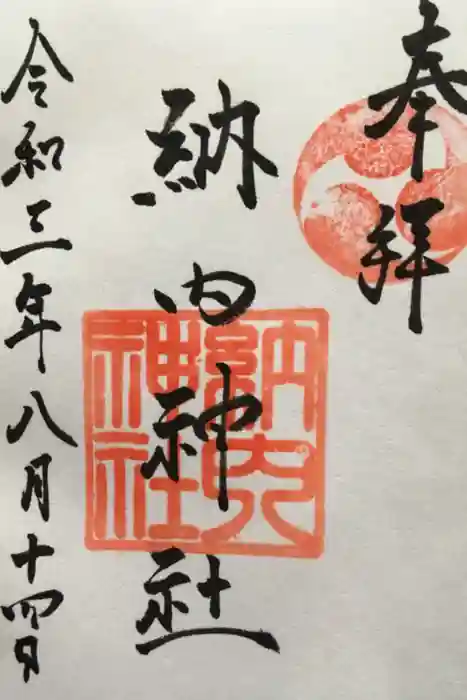 奉拝
納内神社
納内
神社
令和三年八月十四日